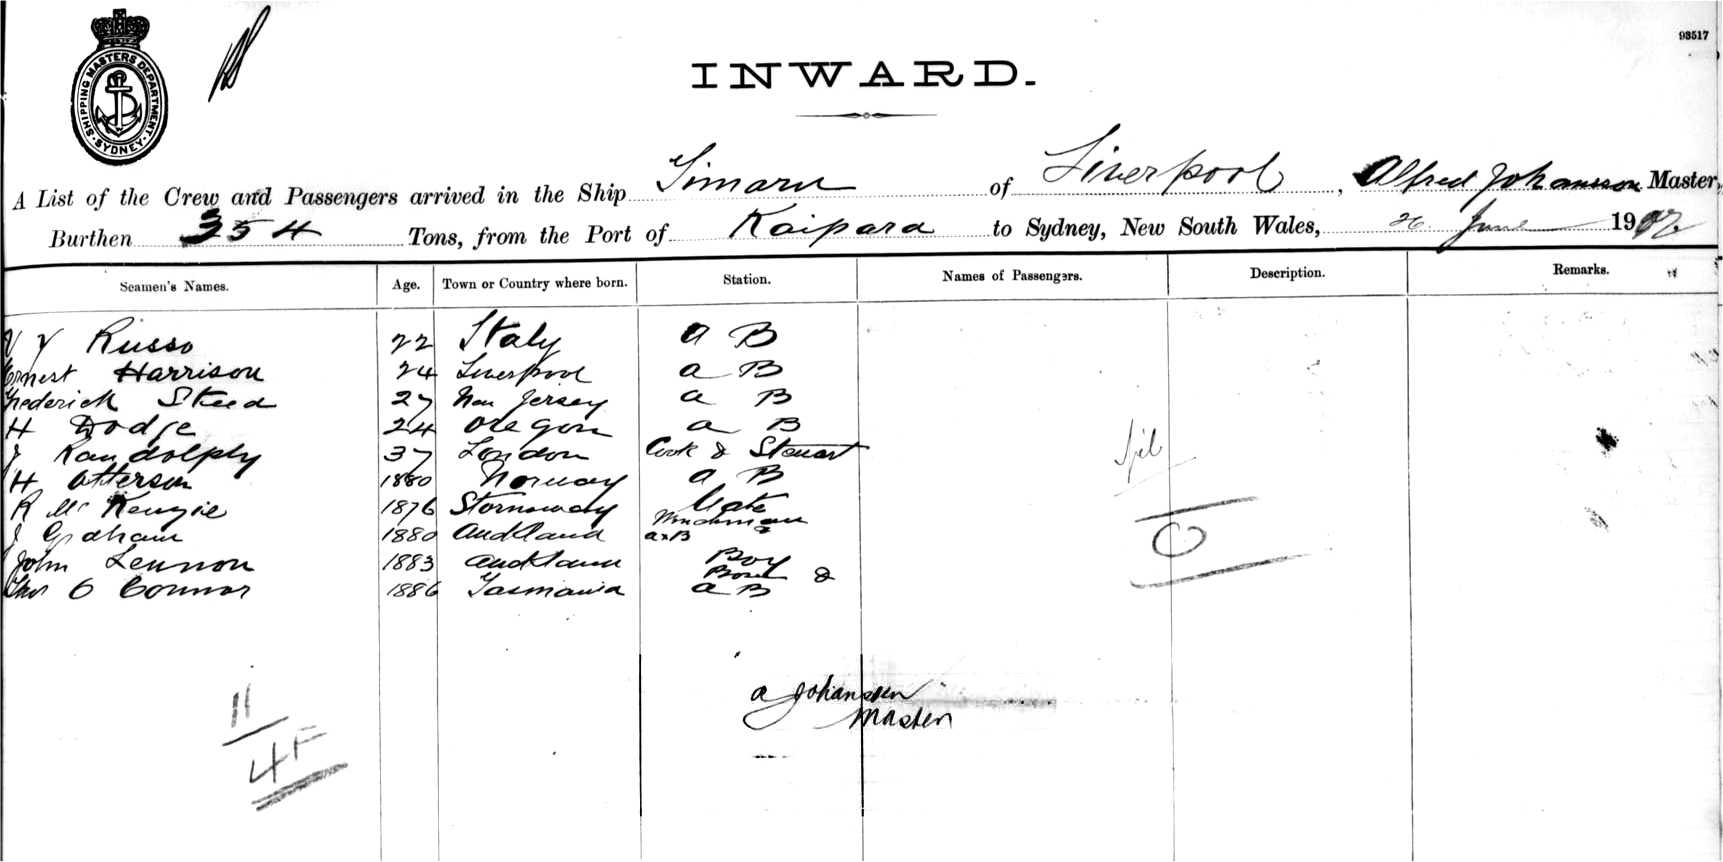 SHIPPING MASTERS DEPARTMENT. SYDNEY
93517
INWARD.
A List of the Crew and Passengers arrived in the Ship Timaru of Liverpool, Alfred Johansson Master,
Burthen 354 Tons, from the Port of Kaipara to Sydney, New South Wales, 26 June 1902
Seamen's Names. Age. Town or Country where born. Station. Names of Passengers. Description. Remarks.
Russo 22 Italy A B
Ernest Harrison 24 Liverpool A B
Frederick Steed 27 New Jersey A B
H Dodge 24 Oregon A B
J Randolph 37 London Cook & Steward
H Atterson 1880 Norway A B
R McKenzie 1876 Stornoway Mate
J Graham 1880 Auckland Winchman & AB
John Lennon 1883 Auckland Boy
Thos O Connor 1886 Tasmania & A B
Nil
0
A Johanssen
Master
11
4F